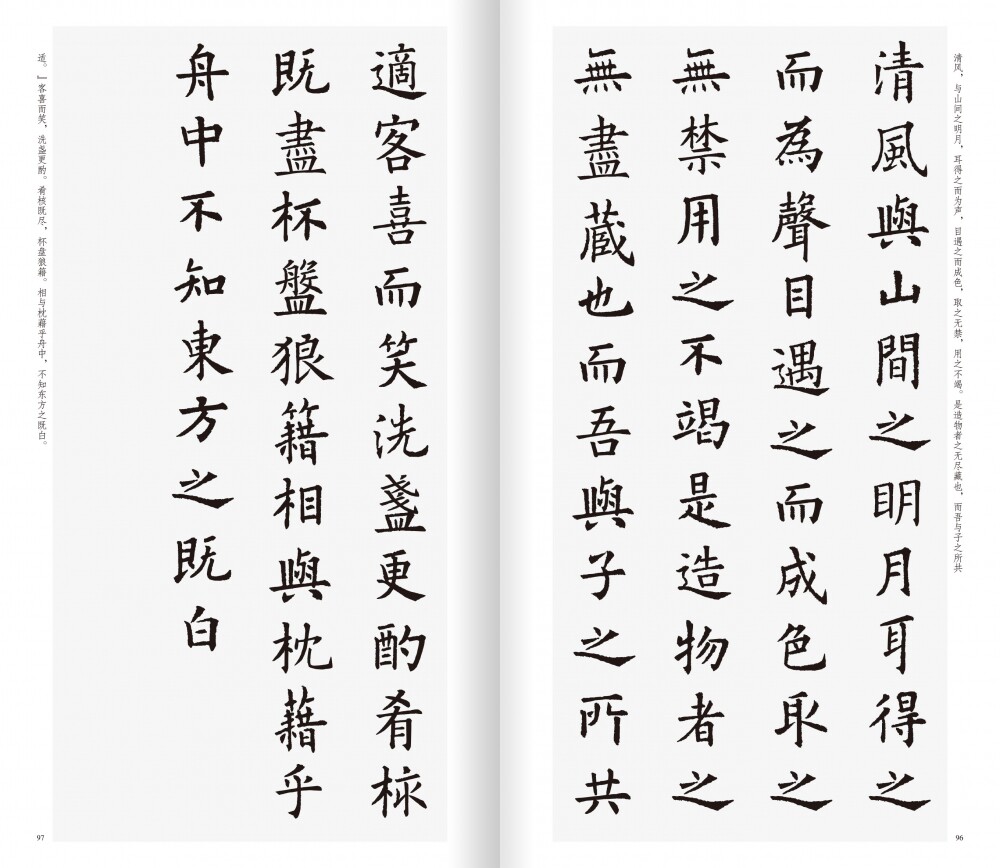 清风，与山间之明月，耳得之而为声，目遇之而成色，取之无禁，用之不竭。是造物者之无尽藏也，而吾与子之所共
清風與山間之明月耳得之
而為聲目遇之而成色取之
無禁用之不竭是造物者之
無盡藏也而吾與子之所共
96
適客喜而笑洗盞更酌肴核
既盡杯盤狼籍相與枕藉乎
舟中不知東方之既白
适。」客喜而笑，洗盏更酌。肴核既尽，杯盘狼籍。相与枕藉乎舟中，不知东方之既白。
97